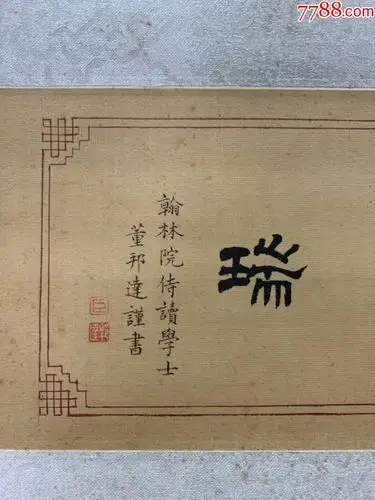 7788.com
翰林院侍讀學士
董邦達謹書
臣